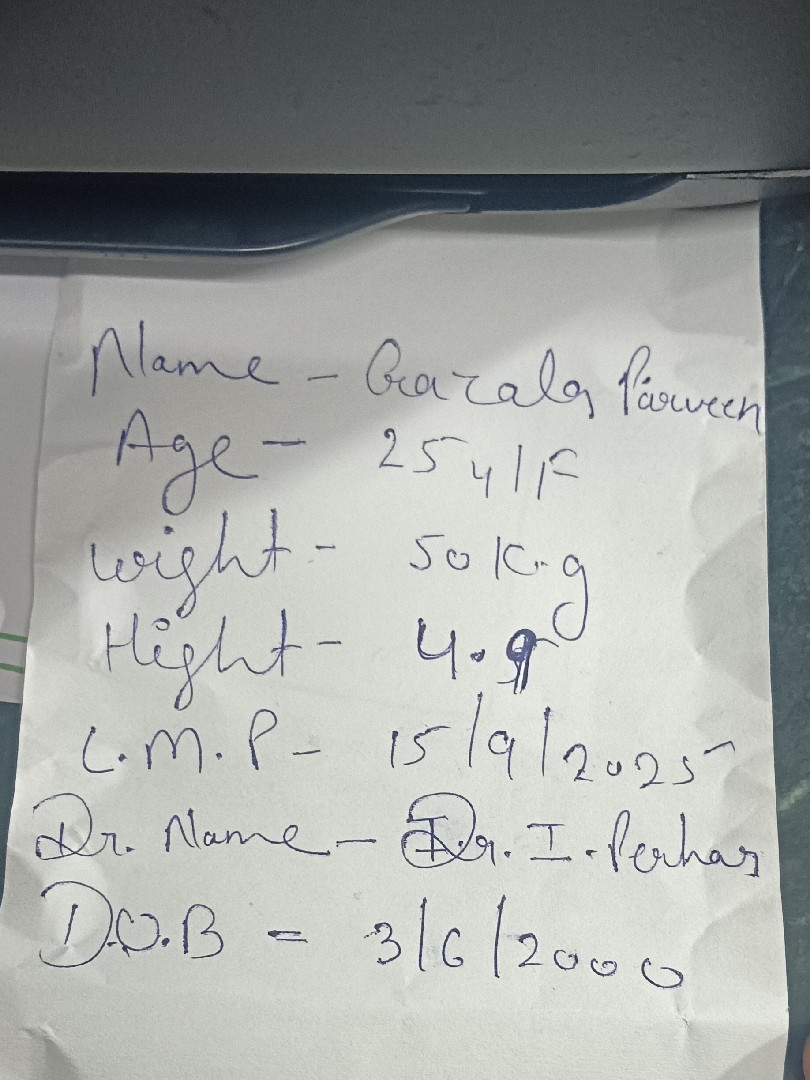 Name - Gazala Parween
Age - 25 y/F
wight - 50 K.g
Hight - 4.9
L.M.P - 15/9/2025
Dr. Name - Dr. I.
D.O.B = 3/6/2000